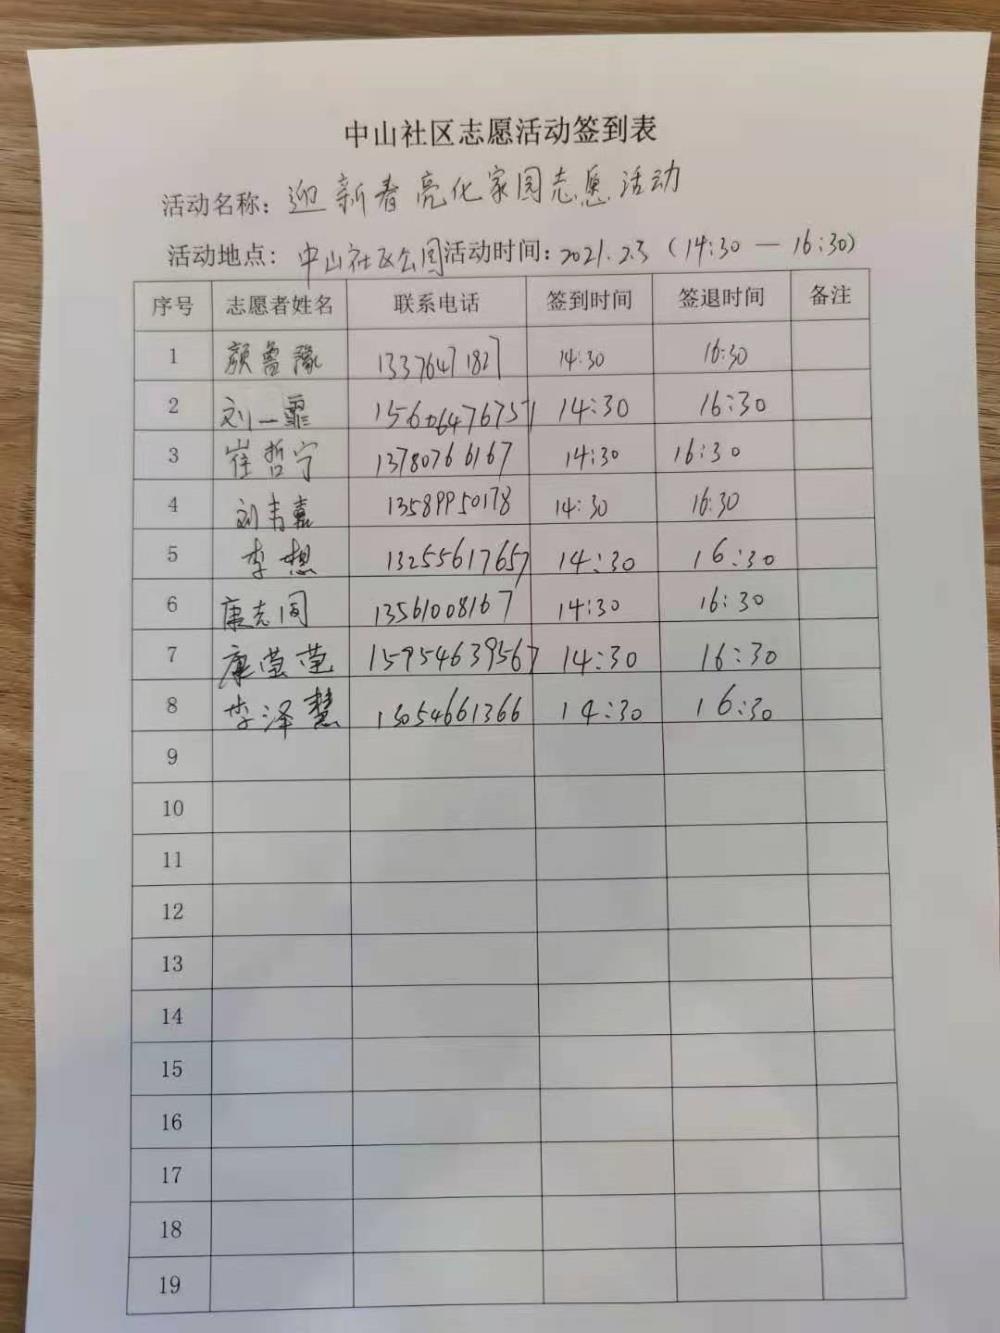 中山社区志愿活动签到表
活动名称：迎新春亮化家园志愿活动
活动地点：中山社区公园活动时间：2021.2.3（14:30—16:30）
序号 志愿者姓名 联系电话 签到时间 签退时间 备注
1 颜鲁豫 13376471827 14:30 16:30
2 刘一霏 15606476757 14:30 16:30
3 崔哲宁 13780766167 14:30 16:30
4 刘韦嘉 13589950178 14:30 16:30
5 李想 13255617657 14:30 16:30
6 康志国 13561008167 14:30 16:30
7 康莹莹 15954639567 14:30 16:30
8 李泽慧 13054661366 14:30 16:30
9
10
11
12
13
14
15
16
17
18
19